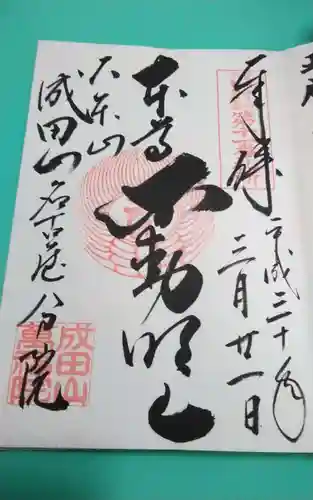 奉拝
平成三十年
三月廿一日
本尊
不動明王
大本山
成田山名古屋分院
成田山
萬福院